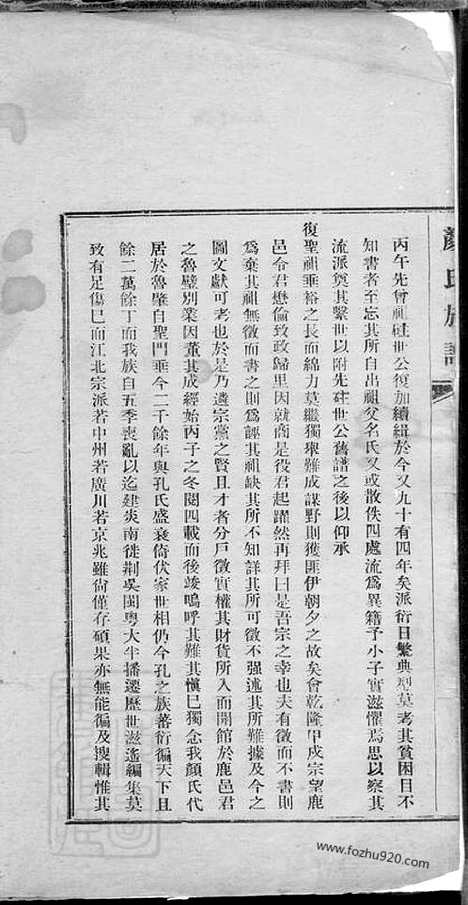 顏氏族譜
丙午先會祖硅世公復加續緝於今又九十有四年矣派衍日繁典型莫考其貧困日不
知書者至忘其所自出祖父名氏又或散佚四處流為異籍予小子實滋懼焉思以察其
流派奠其繫世以附先硅世公舊譜之後以仰承
復聖祖垂裕之長而綿力莫繼獨舉難成謀野則獲匪伊朝夕之故矣會乾隆甲戍宗望鹿
邑令君懋倫致政歸里因就商是役君起躍然再拜曰是吾宗之幸也夫有徵而不書則
為棄其祖無徵而書之則為誣其祖缺其所不知詳其所可徵不强述其所難據及今之
圖文獻可考也於是乃遴宗黨之賢且才者分戶徵實權其財貨所入而開館於鹿邑君
之魯壁別業因董其成經始丙子之冬閱四載而後竣嗚呼其難其慎巳獨念我顏氏代
居於魯肇自聖門垂今二千餘年與孔氏盛衰倚伏家世相仍今孔之族蕃衍徧天下且
餘二萬餘丁而我族自五季喪亂以迄建炎南徙荆吳閩粤大半播遷歷世滋遙編集莫
致有足傷巳而江北宗派若中州若廣川若京兆雖尚僅存碩果亦無能徧及搜輯惟其
www.fozhu920.com